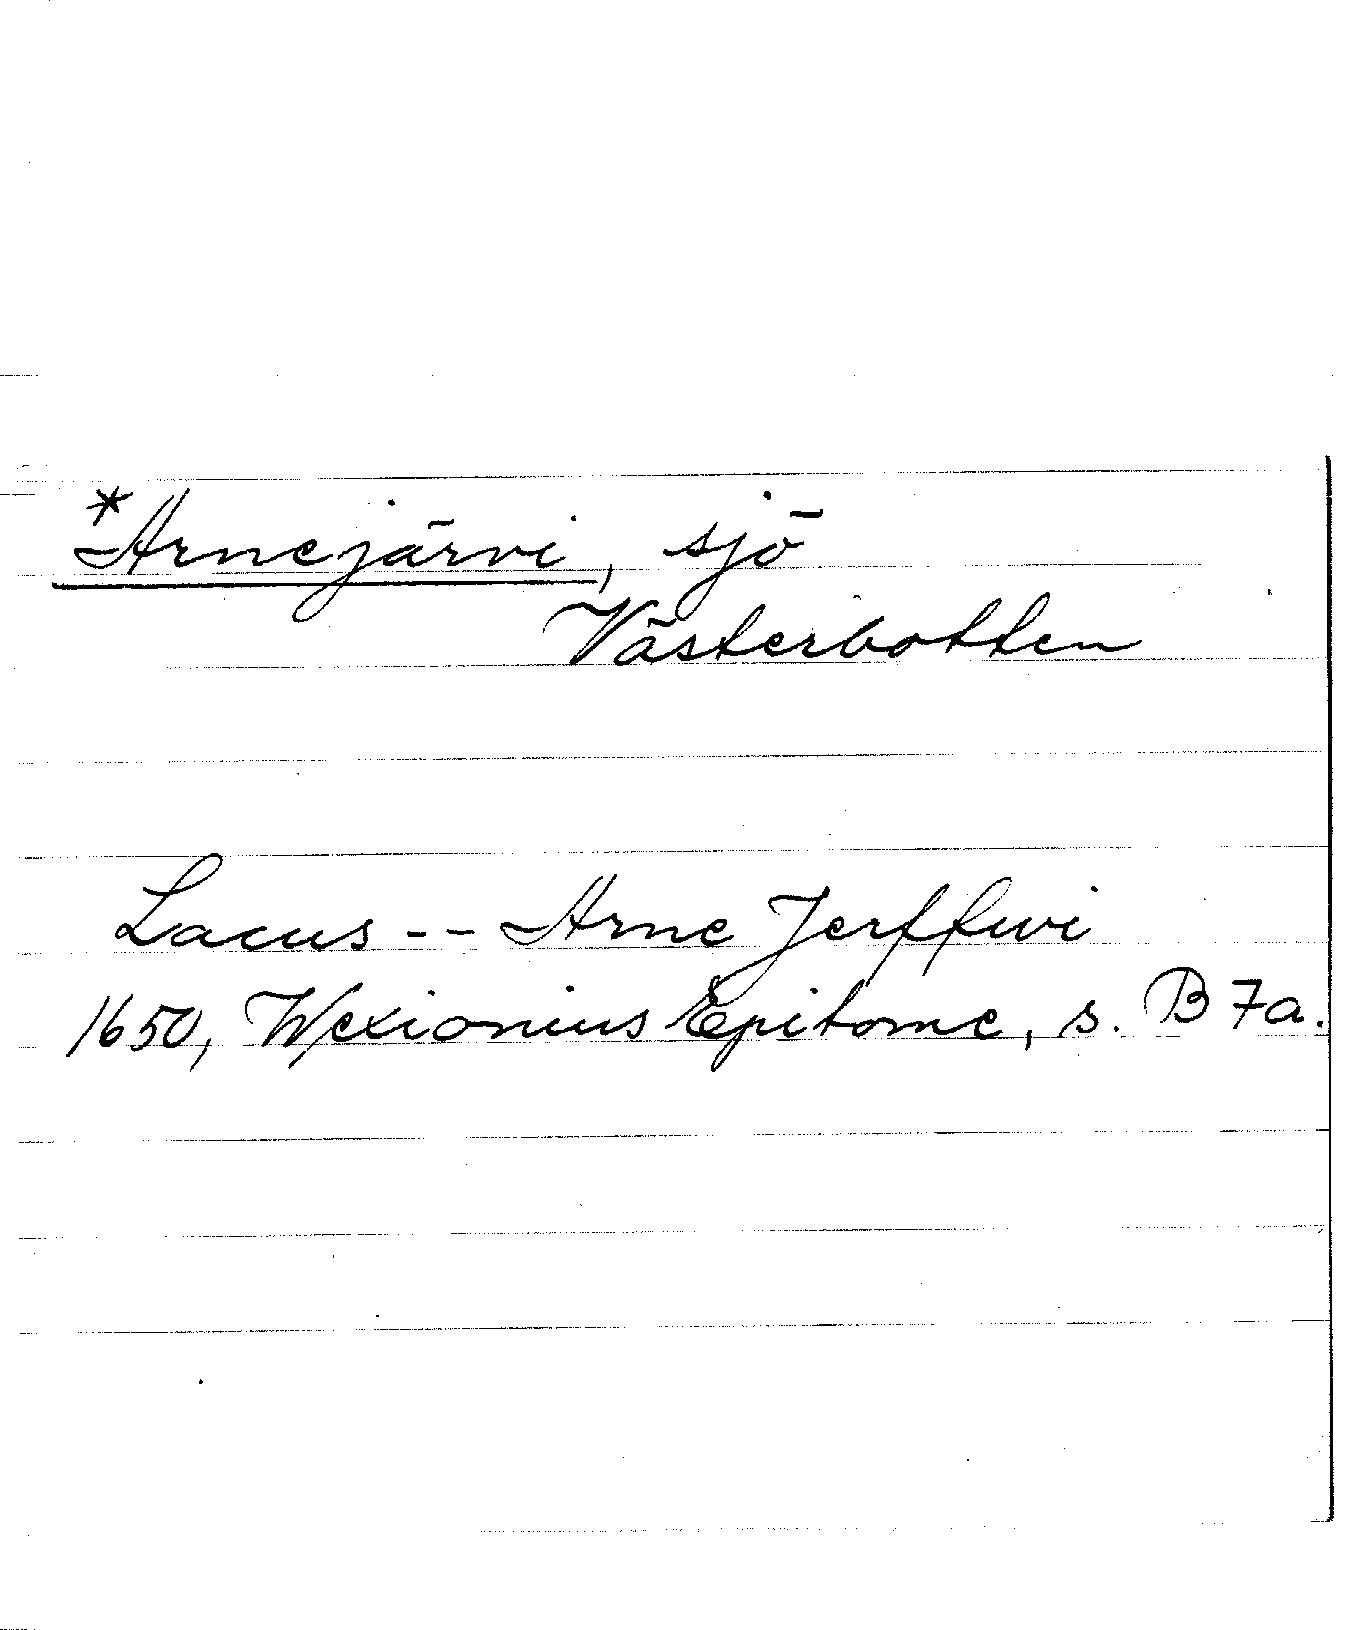 *Arnejärvi, sjö
Västerbotten
Lacus -- Arne Jerffwi
1650, Wexionius Epitome, s. B 7a.